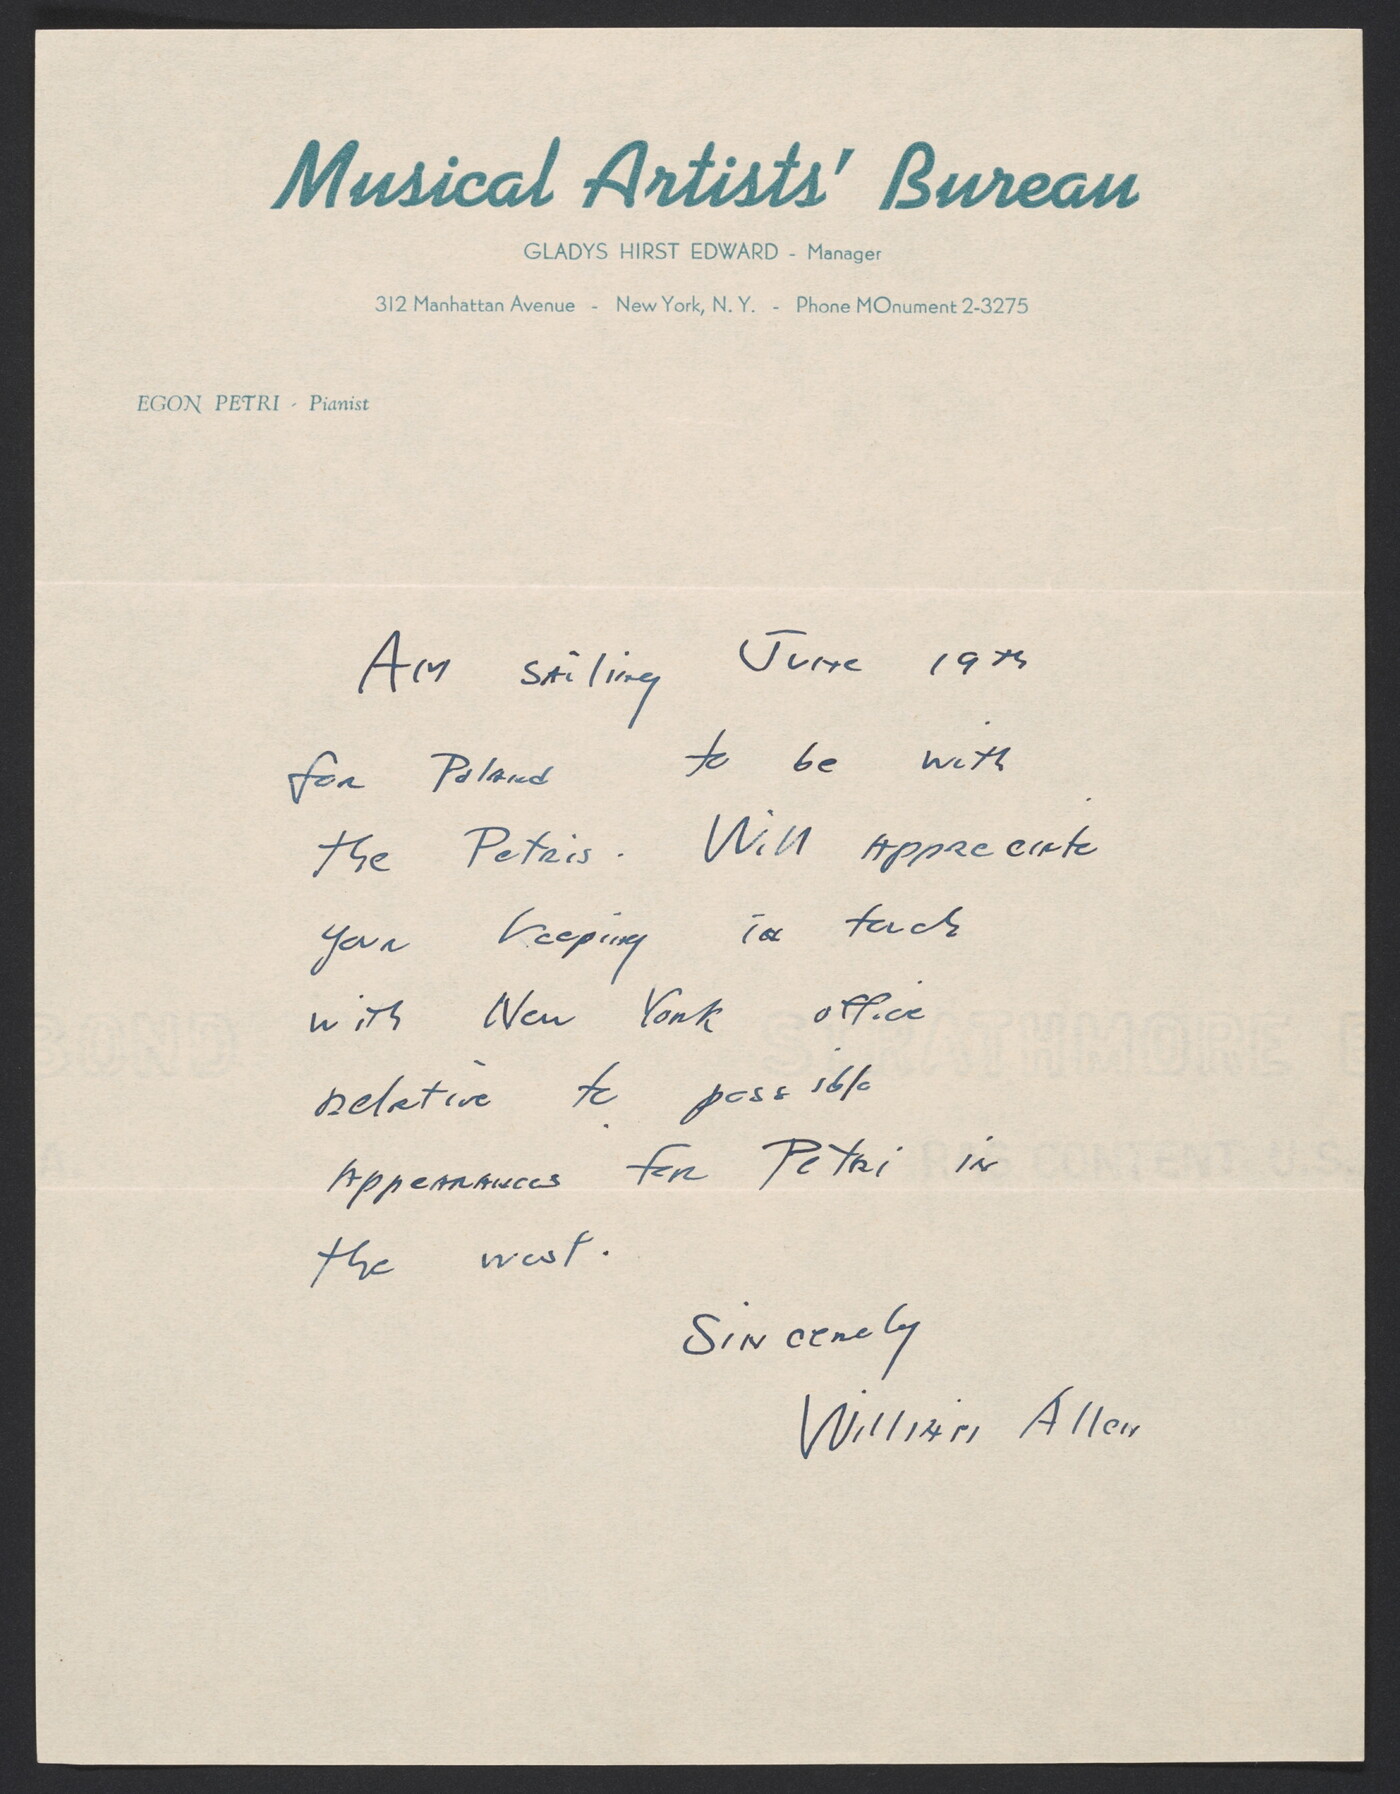 Musical Artists' Bureau
GLADYS HIRST EDWARD - Manager
312 Manhattan Avenue - New York, N. Y. - Phone MOnument 2-3275
EGON PETRI - Pianist
Am sailing June 19th
for Poland to be with
the Petris. Will appreciate
your keeping in touch
with New York office
relative to possible
appearances for Petri in
the west.
Sincerely
William Allen
BOND STRATHMORE
RAG CONTENT U.S.